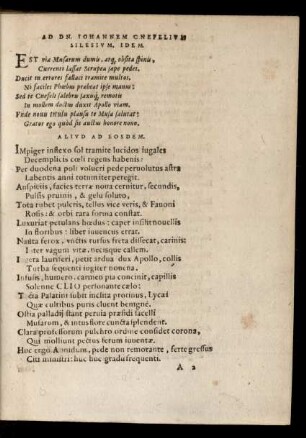 AD DN. IOHANNEM CNEFELIUM
SILESIUM, IDEM.
EST via Musarum dumis, atq; obsita spinis,
Currentis lassat Scrupea sæpe pedes.
Ducit in errores fallaci tramite multos,
Ni faciles Phœbus præbeat ipse manus:
Sed te Cnefeli salebris saxisq; remotis
In mollem doctus duxit Apollo viam.
Pede nova titulu plausu te Musa salutat:
Gratus ego quod sis auctus honore novo.
ALIUD AD EOSDEM.
IMpiger inflexo sol tramite lucidos iugales
Decemplicis cœli regens habenis:
Per duodena poli volucri pede pervolutus astra
Labentis anni totum iter peregit.
Auspiciis, facies terræ nota cernitur, secundis,
Pulsis pruinis, & gelu soluto,
Tota rubet pulcris, tellus vice veris, & Favoni
Rosis: & orbi rara forma constat.
Luxuriat petulans hœdus: caper insilit novellis
In floribus: liber iuvencus errat.
Navita ferox, victis rursus freta dissecat, carinis:
Iter vagum vitæ, necisque callem.
Iugera lauriferi, petit ardua dux Apollo, collis
Turba sequenti iugiter novena.
Insulis, humero, carmen pia concinit, capillis
Solenne CLIO personante cælo:
Tecta Palatini subit inclita protinus, Lycæi
Quæ cultibus puris cluent benignè.
Ostia palladij stant pervia præsidi facelli
Musarum, & intus flore cuncta splendent.
Clara professorum pulchro ordine consident corona,
Qui molliunt pectus ferum iuventæ.
Huc ergò Aonidum, pede non remorante, ferte gressus
Citi ministri: huc huc gradu frequenti.
A 2